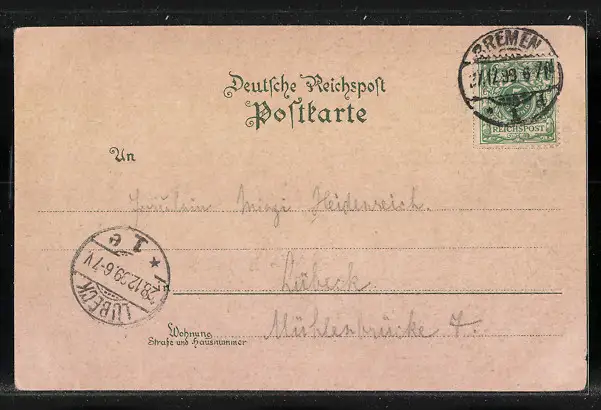 BREMEN
27.12.99.6-7N.
1
REICHSPOST
Deutsche Reichspost
Postkarte
An
Fräulein Mizzi Heidenreich.
LÜBECK
28.12.99.6-7V
1 e
in
Lübeck
Wohnung
Straße und Hausnummer
Mühlenbrücke 7.